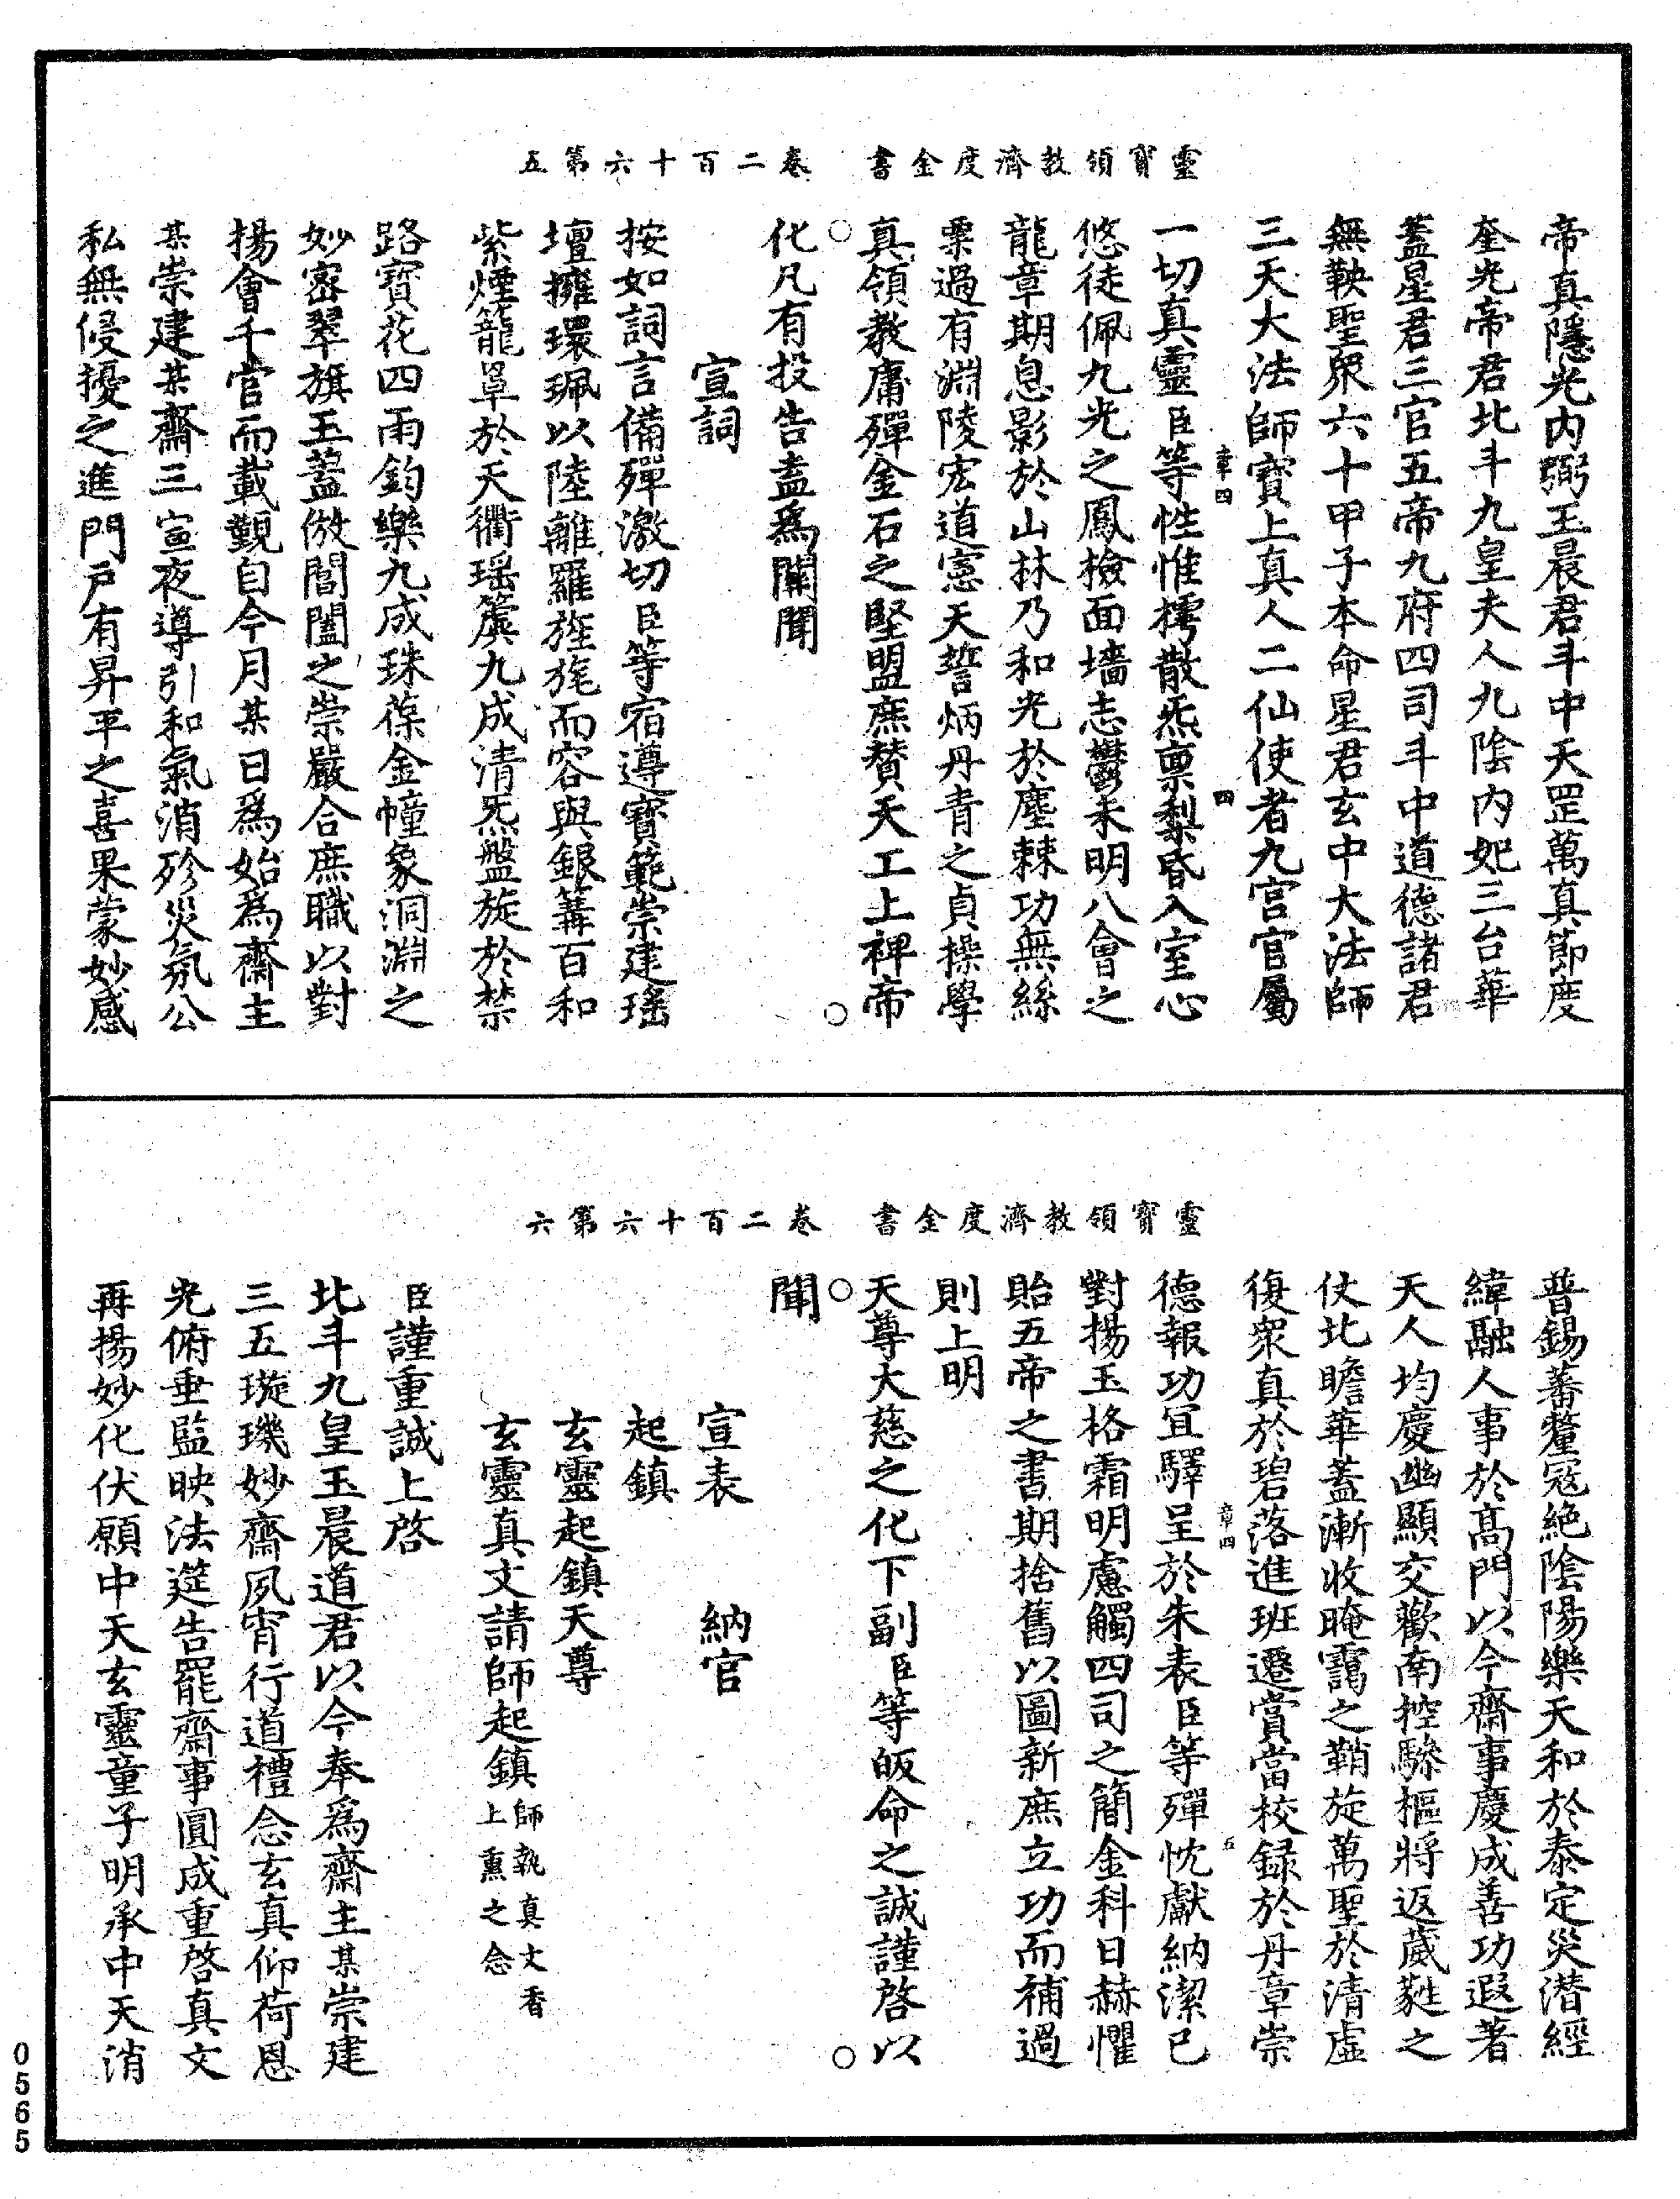 靈寶領教濟度金書　卷二百十六第五
帝真隱光內弼玉晨君斗中天罡萬真節度
奎光帝君北斗九皇夫人九陰內妃三台華
蓋星君三官五帝九府四司斗中道德諸君
無鞅聖眾六十甲子本命星君玄中大法師
三天大法師寶上真人二仙使者九宮官屬
章四
四
一切真靈臣等性惟樗散炁禀梨昏入室心
悠徒佩九光之鳳檢面墻志鬱未明八會之
龍章期息影於山林乃和光於塵棘功無絲
粟過有淵陵宏道憲天誓炳丹青之貞操學
真領教庸殫金石之堅盟庶贊天工上裨帝
○　○
化凡有投告盍為闡聞
宣詞
按如詞言備殫激切臣等宿遵寶範崇建瑤
壇擁環珮以陸離羅旌旄而容與銀篝百和
紫煙籠罩於天衢瑶簴九成清炁盤旋於禁
路寶花四雨鈞樂九成珠葆金幢象洞淵之
妙密翠旗玉蓋倣閶闔之崇嚴合庶職以對
揚會千官而載覲自今月某日為始為齋主
某崇建某齋三宣夜導引和氣消殄災氛公
私無侵擾之進門戶有昇平之喜果蒙妙感
靈寶領教濟度金書　卷二百十六第六
普錫蕃釐寇絕陰陽樂天和於泰定災潛經
緯融人事於高門以今齋事慶成善功遐著
天人均慶幽顯交歡南控驂樞將返葳蕤之
仗北瞻華蓋漸收晻靄之鞘旋萬聖於清虛
復眾真於碧落進班遷賞當校錄於丹章崇
章四
五
德報功冝驛呈於朱表臣等殫忱獻納潔已
對揚玉格霜明慮觸四司之簡金科日赫懼
貽五帝之書期捨舊以圖新庶立功而補過
則上明
天尊大慈之化下副臣等皈命之誠謹啓以
○　○
聞
宣表　納官
起鎮
玄靈起鎮天尊
玄靈真文請師起鎮師執真文香上熏之念
臣謹重誠上啓
北斗九皇玉晨道君以今奉為齋主某崇建
三五璇璣妙齋夙宵行道禮念玄真仰荷恩
光俯垂監映法筵告罷齋事圓成重啓真文
再揚妙化伏願中天玄靈童子明承中天消
0565